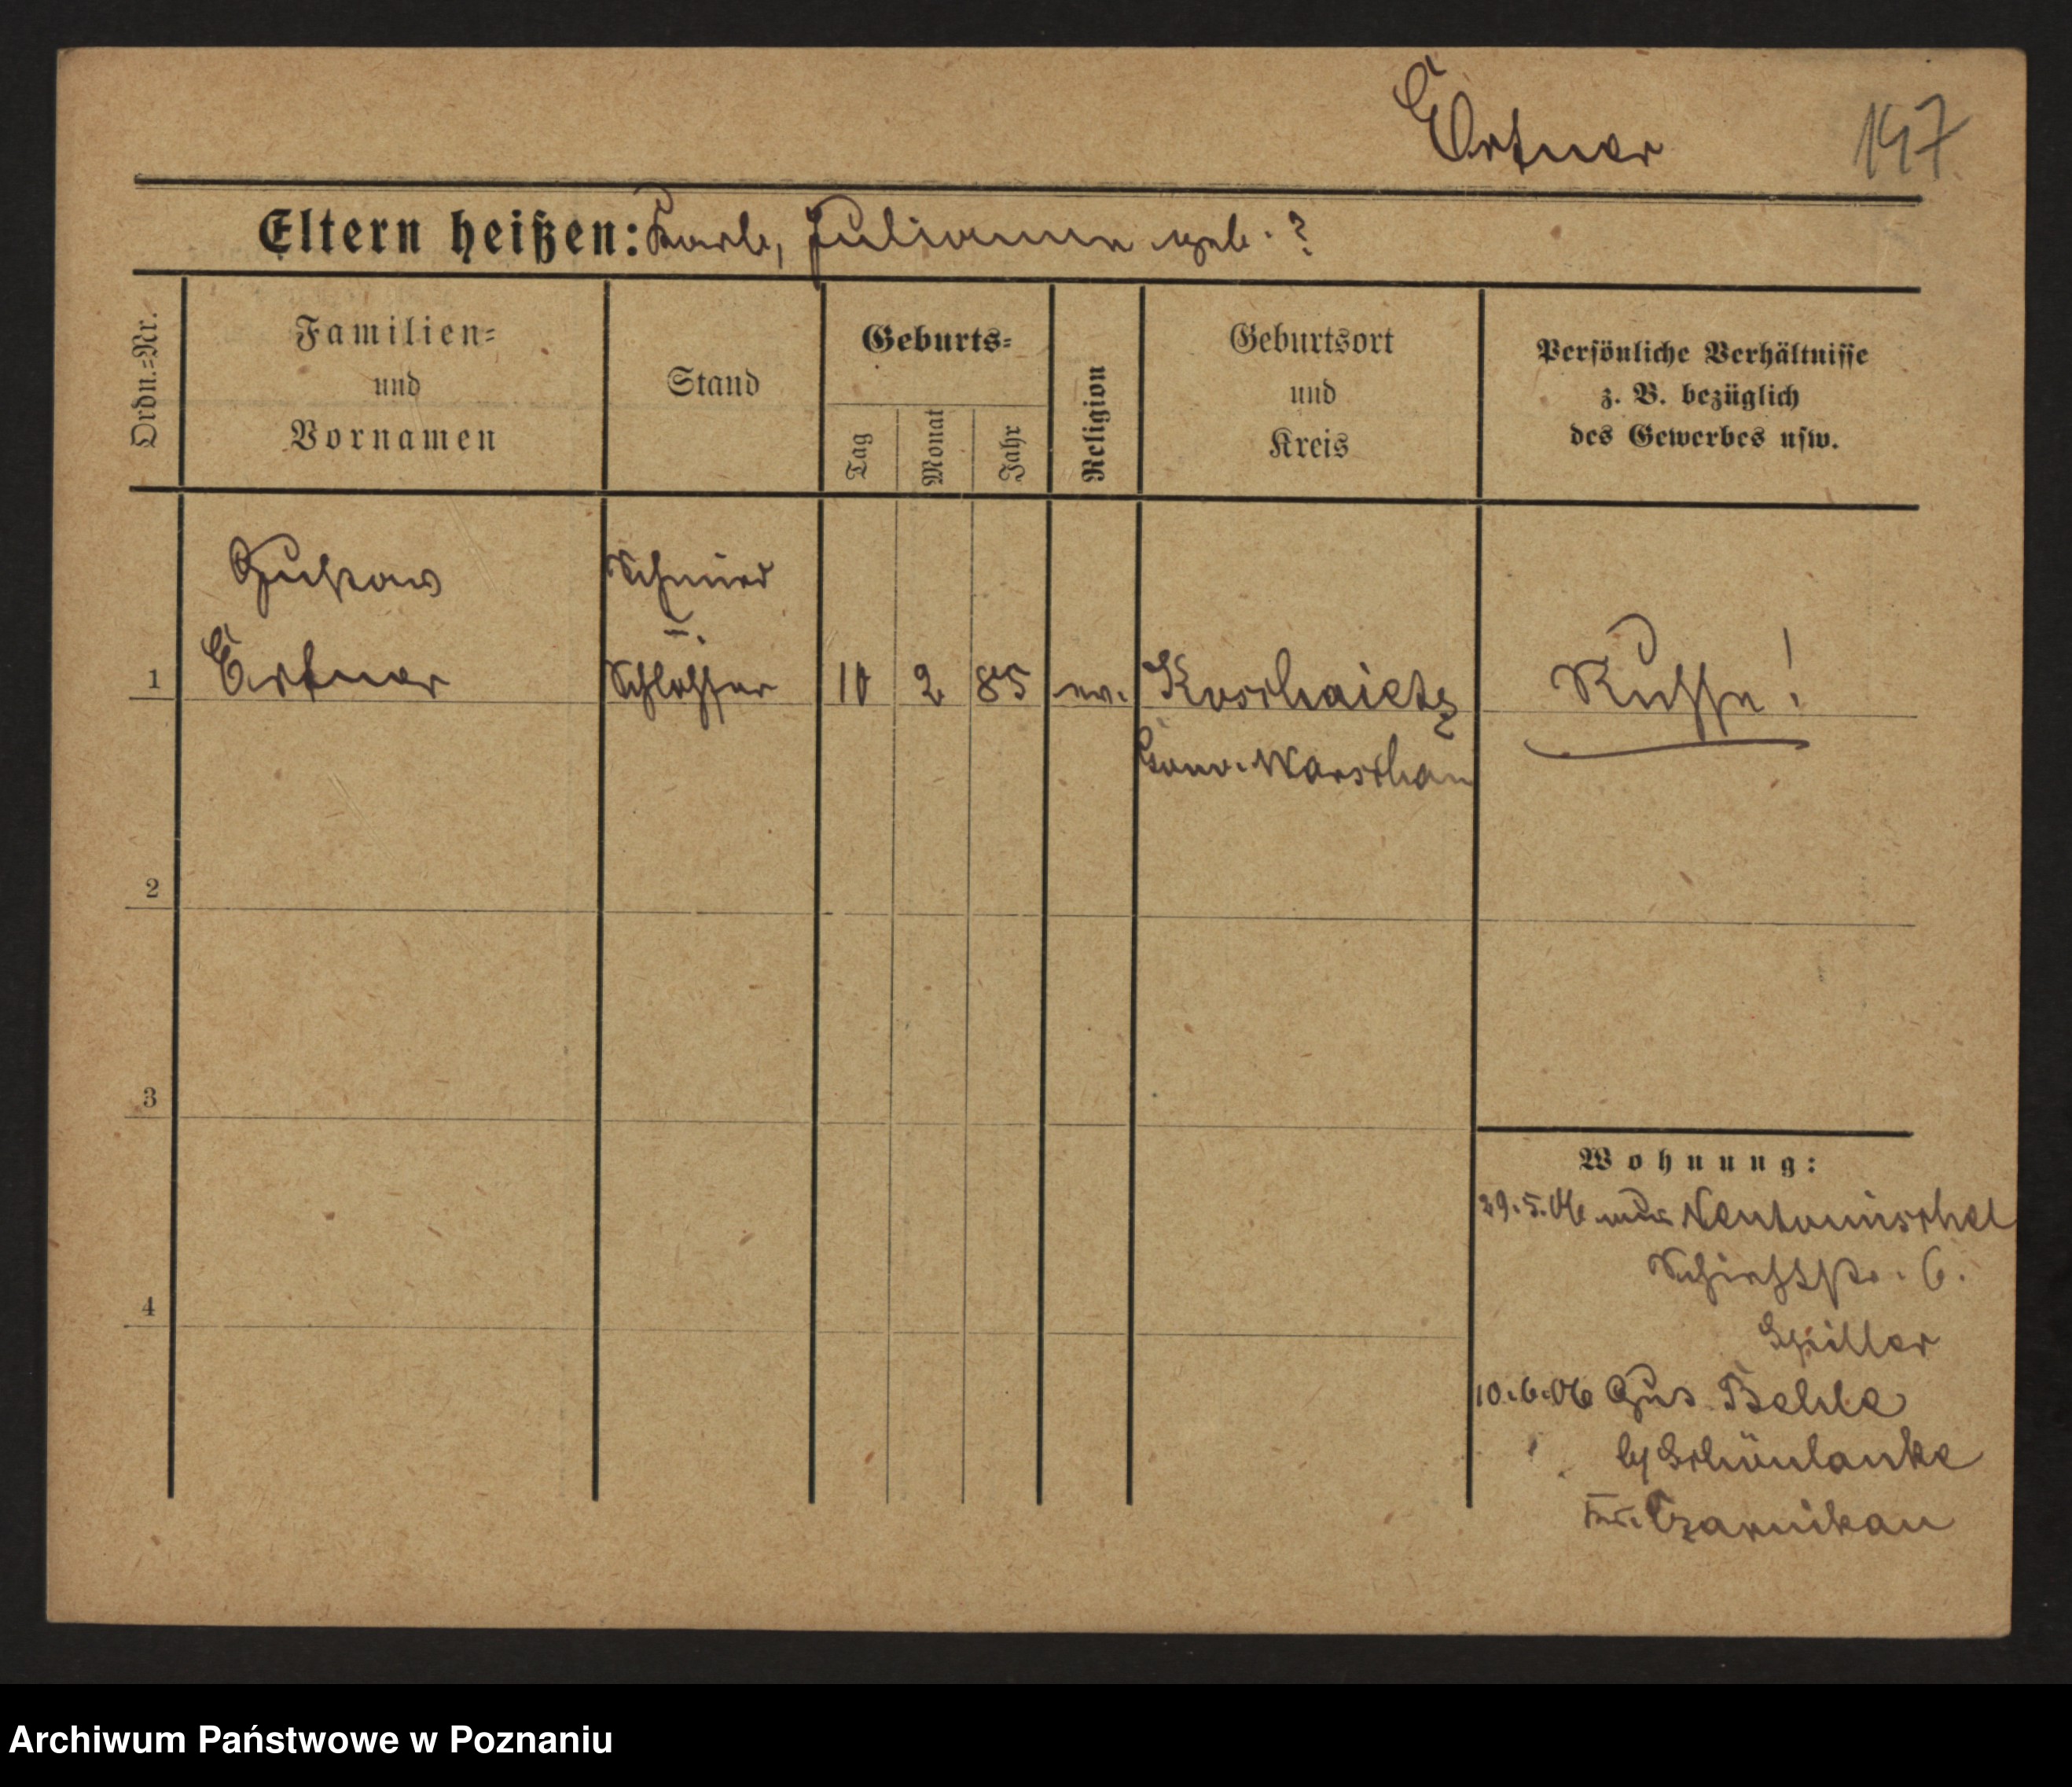 Ertner 147
Eltern heißen: Karl, Julianna geb. ?
Ordn.=Nr.
Familien=
und
Vornamen
Stand
Geburts=
Tag
Monat
Jahr
Religion
Geburtsort
und
Kreis
Persönliche Verhältnisse
z. B. bezüglich
des Gewerbes usw.
Gustav Schmied
u.
1 Ertner Schlosser 10 2 85 ev. Koschaietz Russe!
Gouv. Warschau
2
3
4
Wohnung:
29.5.06 aus Neutomischel
Schießstr. 6.
Spiller
10.6.06 Gus Behle
b/ Schönlanke
Kr. Czarnikau
Archiwum Państwowe w Poznaniu